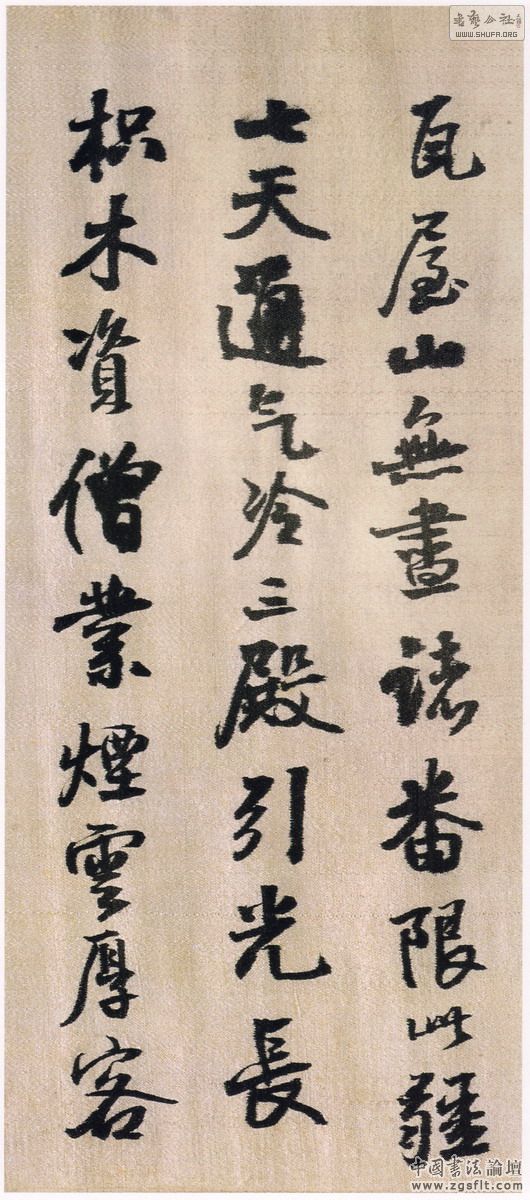 瓦屋山無晝諸番限此疆
七天通气冷三殿引光長
枳木資僧業煙雲厚客
书艺公社
WWW.SHUFA.ORG
中國書法論壇
www.zgsflt.com